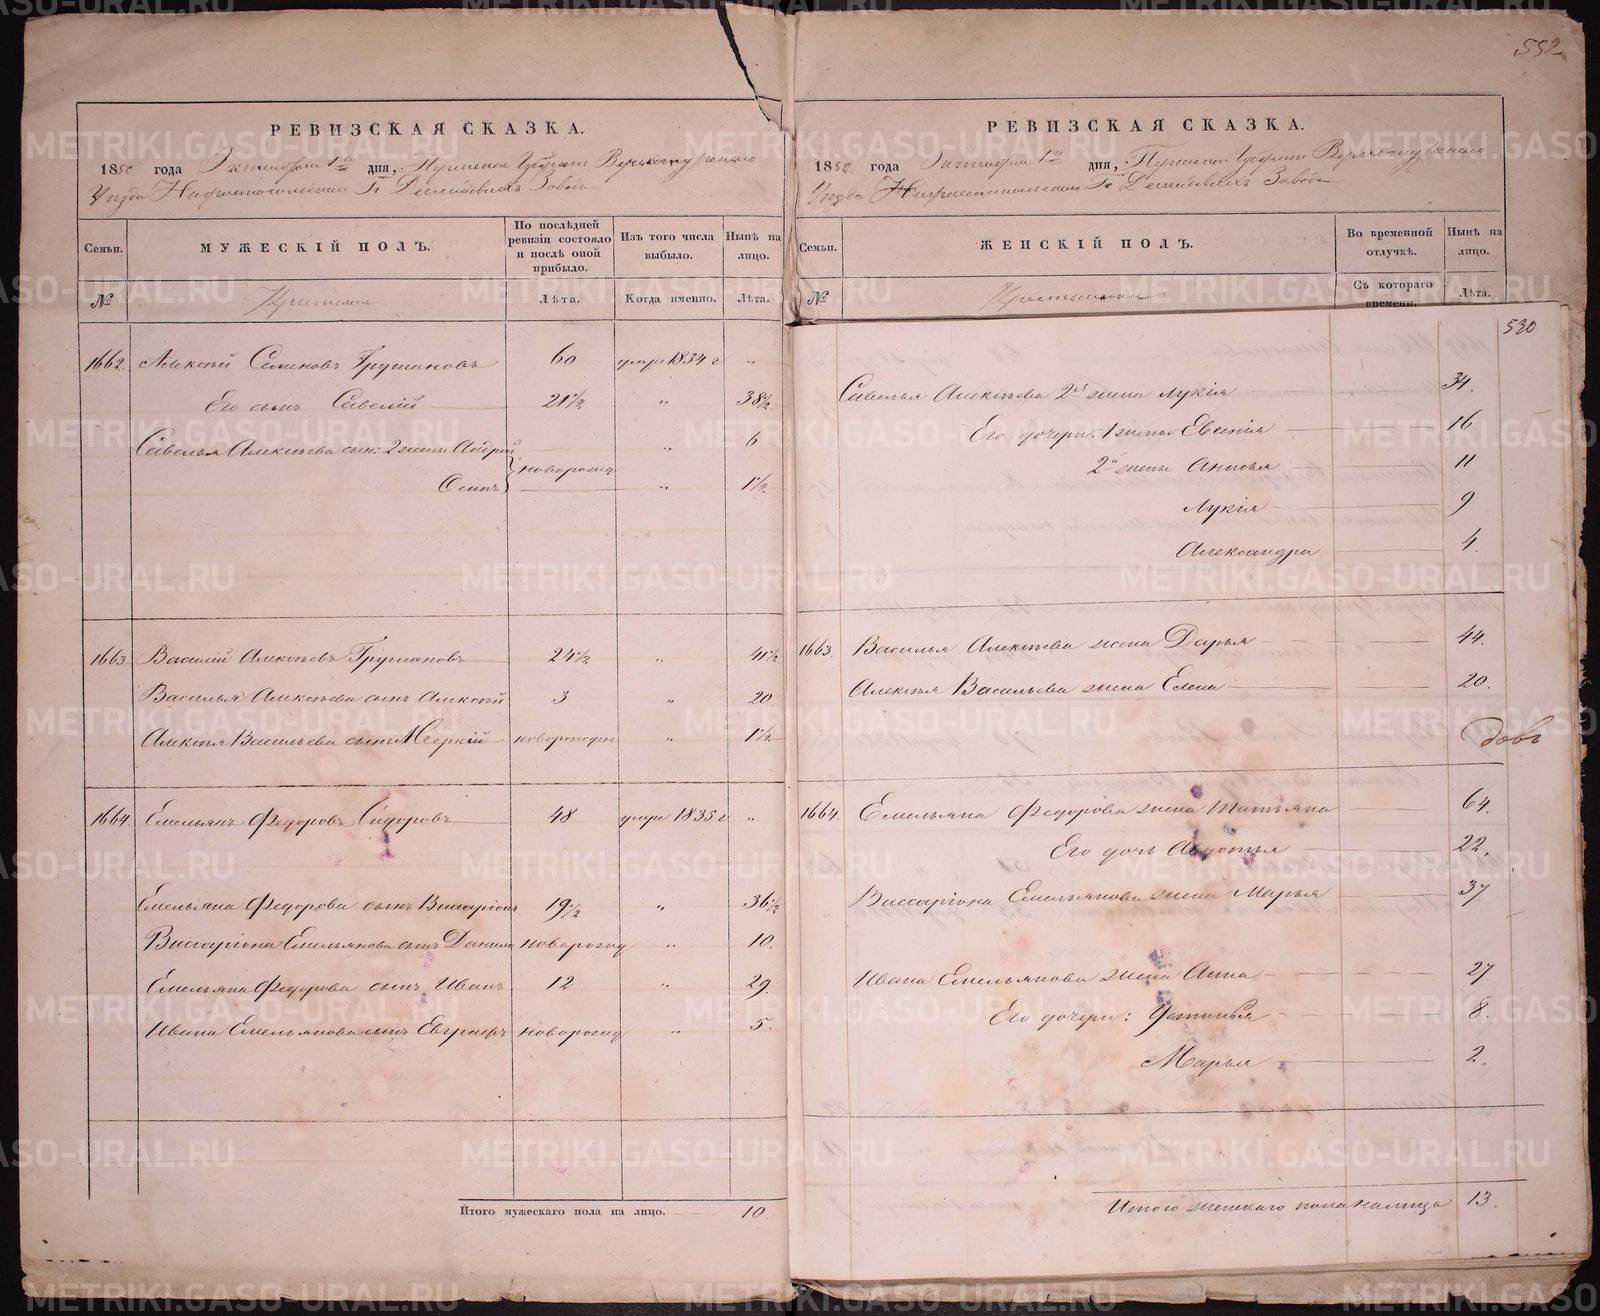 552
РЕВИЗСКАЯ СКАЗКА.
1850 года Октября 1го дня, Пермской Губернии Верхотурскаго
Уѣзда Нижнетагильскаго Гг Демидовыхъ Завода
Семьи.
МУЖЕСКІЙ ПОЛЪ.
По послѣдней ревизіи состояло и послѣ оной прибыло.
Изъ того числа выбыло.
Нынѣ на лицо.
№
Крестьяне
Лѣта.
Когда именно.
Лѣта.
1662. Алексѣй Семеновъ Грушановъ 60 умре 1834 г „
Его сынъ Савелій 21½ „ 38½
Савелья Алексѣева сын: 2 жены Андрей } новорожд „ 6
Осипъ „ 1½
1663. Василій Алексѣевъ Грушановъ 24½ „ 41½
Василья Алексѣева сынъ Алексѣй 3 „ 20
Алексѣя Васильева сынъ Меркій новорожден „ 1½
1664. Емельянъ Федоровъ Сидоровъ 48 умре 1835 г „
Емельяна Федорова сынъ Виссаріонъ 19½ „ 36½
Виссаріона Емельянова сынъ Данила новорожд „ 10.
Емельяна Федорова сынъ Иванъ 12 „ 29
Ивана Емельянова сынъ Евграфъ новорожд „ 5.
Итого мужескаго пола на лицо. 10
РЕВИЗСКАЯ СКАЗКА.
1850 года Октября 1го дня, Пермской Губерніи Верхотурскаго
Уѣзда Нижнетагильскаго Гг Демидовыхъ Завода
Семьи.
ЖЕНСКІЙ ПОЛЪ.
Во временной отлучкѣ.
Нынѣ на лицо.
№
Крестьянки
Съ котораго времени.
Лѣта.
530
Савелья Алексѣева 2я жена Лукія 34.
Его дочери: 1 жены Евгенія 16
2й жены Анисья 11
Лукія 9
Александра 4.
1663. Василья Алексѣева жена Дарья 44.
Алексѣя Васильева жена Елена 20.
довъ
1664. Емельяна Федорова жена Татьяна 64.
Его дочь Авдотья 22.
Виссаріона Емельянова жена Марья 37
Ивана Емельянова жена Анна 27
Его дочери: Устинья 8.
Марья 2.
Итого женскаго пола налицо 13.
METRIKI.GASO-URAL.RU